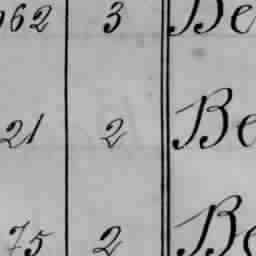 962 3 Be
21 2 Be
75 2 Be